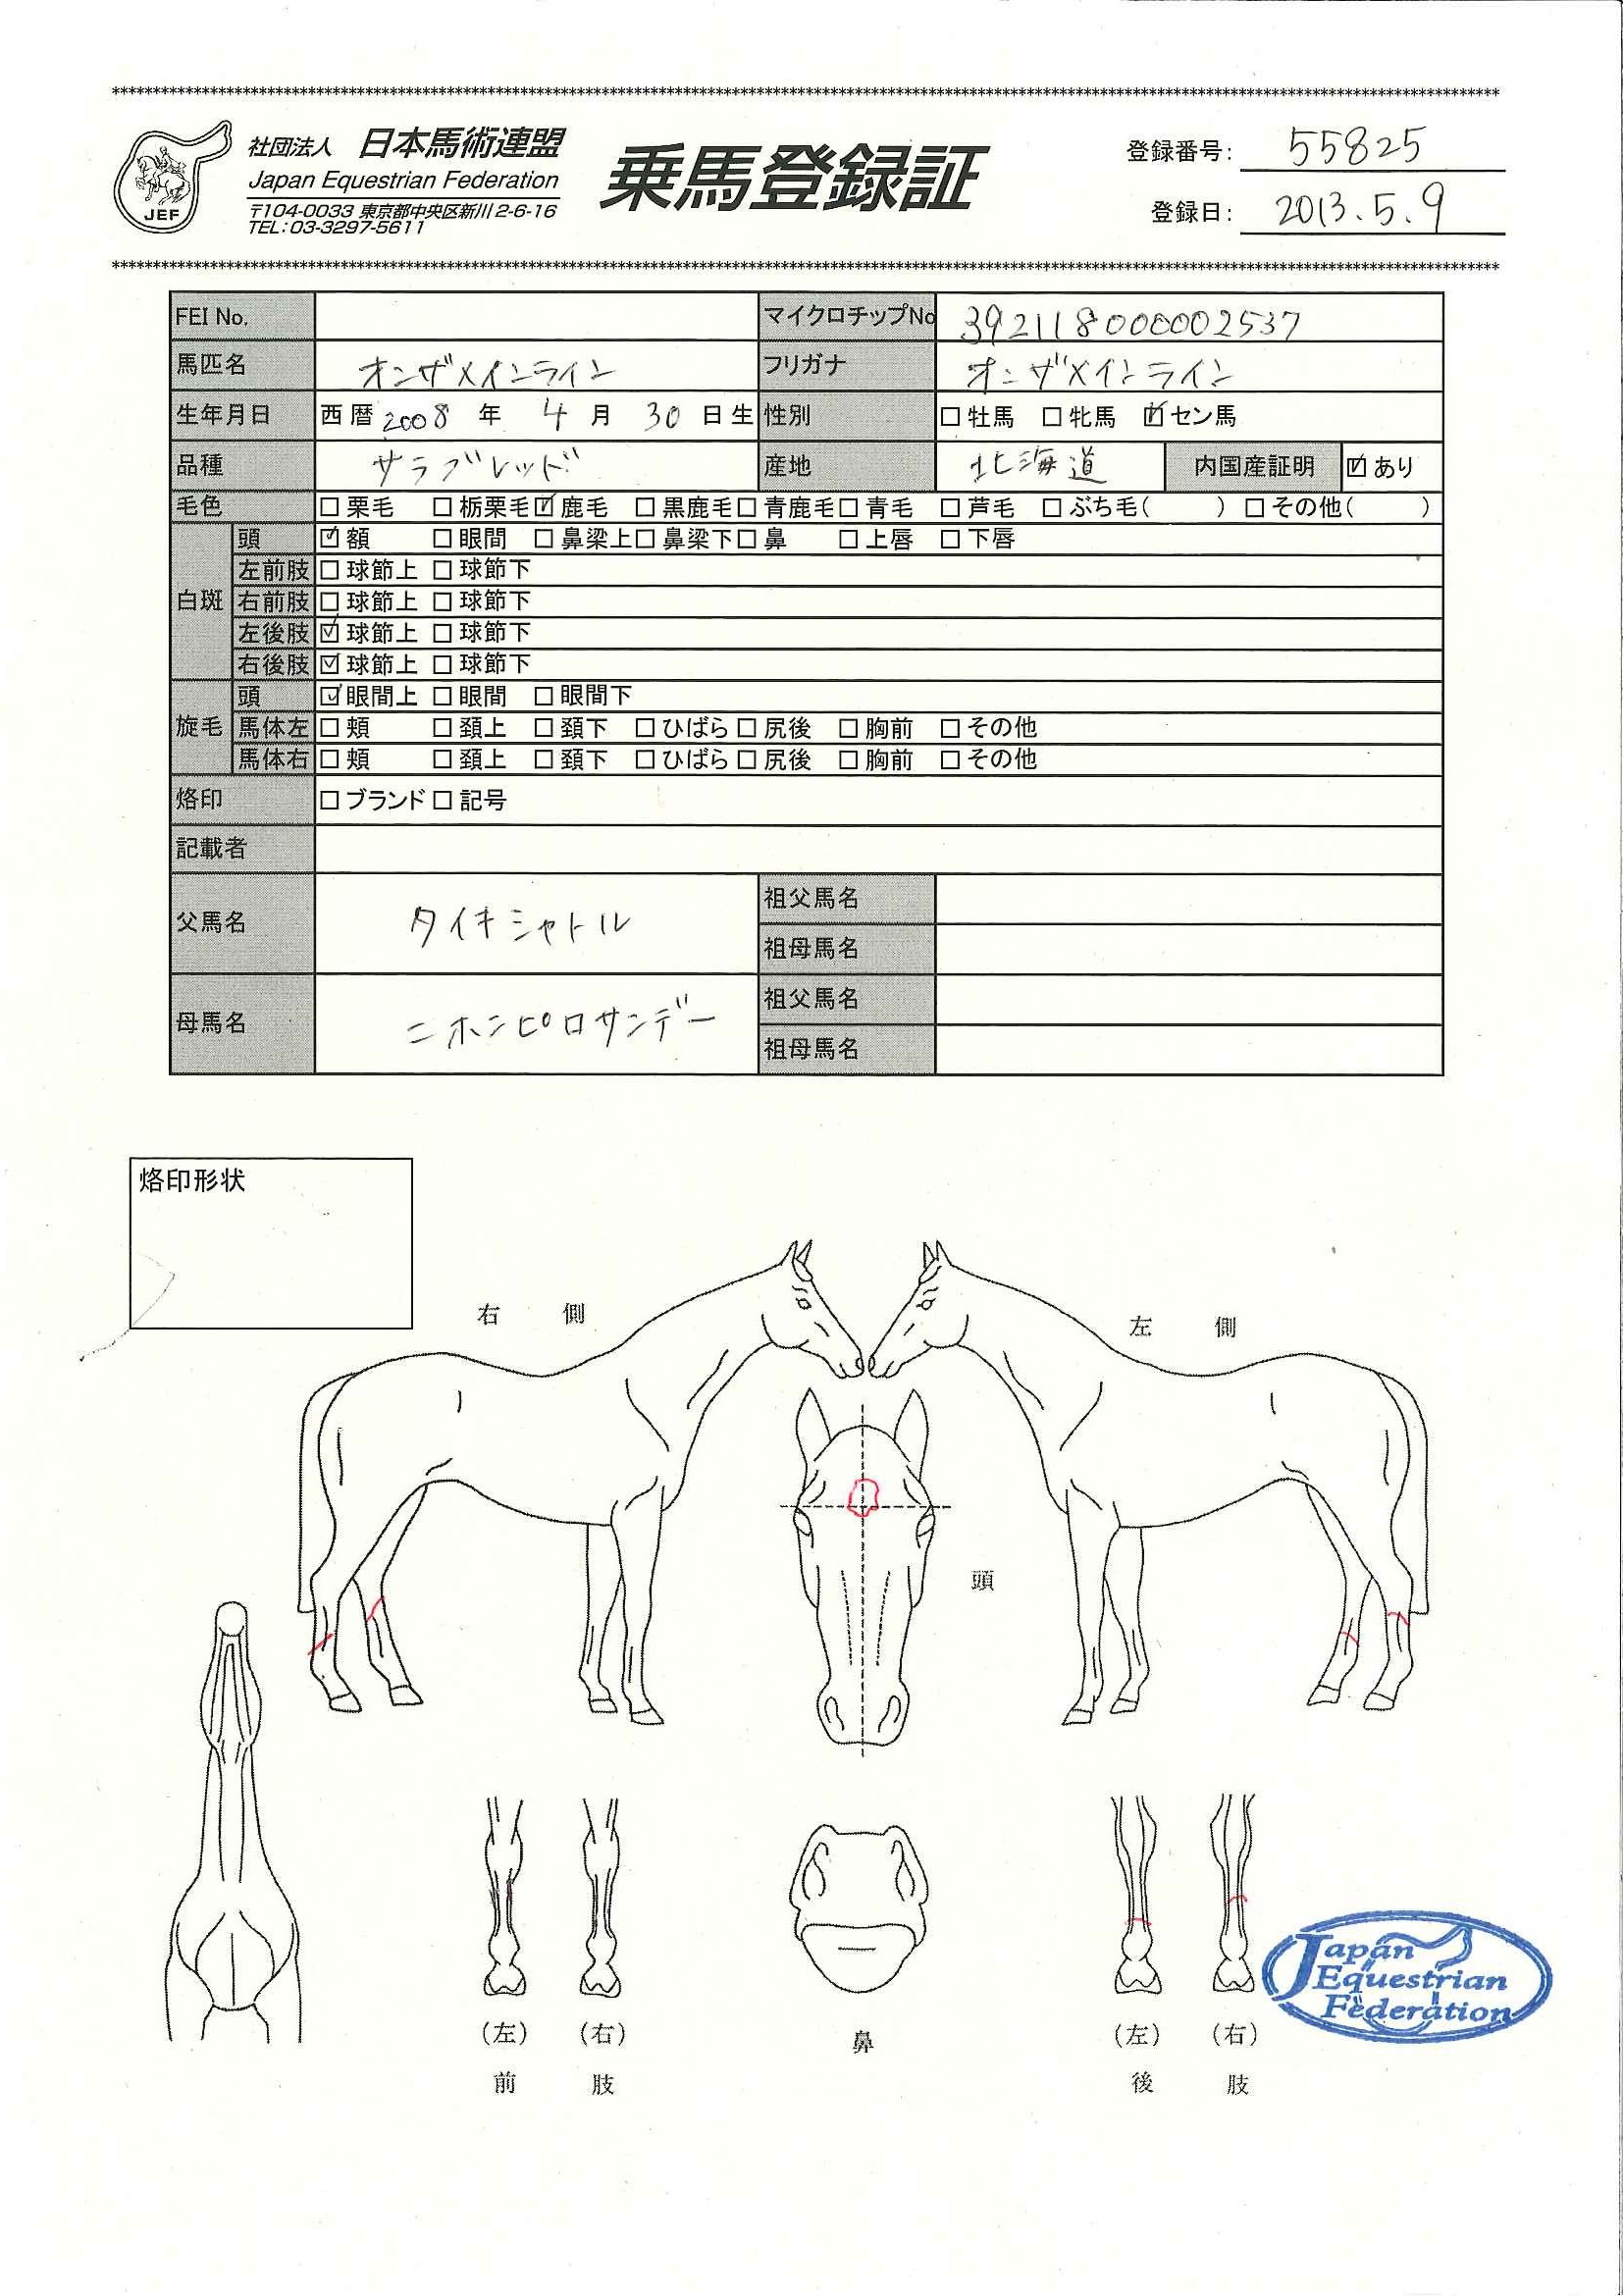 社団法人 日本馬術連盟
Japan Equestrian Federation
〒104-0033 東京都中央区新川2-6-16
TEL:03-3297-5611
JEF
乗馬登録証
登録番号: 55825
登録日: 2013.5.9
FEI No. マイクロチップNo 392118000002537
馬匹名 オンザメインライン フリガナ オンザメインライン
生年月日 西暦 2008 年 4 月 30 日生 性別 □牡馬 □牝馬 ☑セン馬
品種 サラブレッド 産地 北海道 内国産証明 ☑あり
毛色 □栗毛 □栃栗毛 ☑鹿毛 □黒鹿毛 □青鹿毛 □青毛 □芦毛 □ぶち毛( ) □その他( )
白斑
頭 ☑額 □眼間 □鼻梁上 □鼻梁下 □鼻 □上唇 □下唇
左前肢 □球節上 □球節下
右前肢 □球節上 □球節下
左後肢 ☑球節上 □球節下
右後肢 ☑球節上 □球節下
旋毛
頭 ☑眼間上 □眼間 □眼間下
馬体左 □頬 □頚上 □頚下 □ひばら □尻後 □胸前 □その他
馬体右 □頬 □頚上 □頚下 □ひばら □尻後 □胸前 □その他
烙印 □ブランド □記号
記載者
父馬名 タイキシャトル 祖父馬名
祖母馬名
母馬名 ニホンピロサンデー 祖父馬名
祖母馬名
烙印形状
右 側
左 側
頭
(左) (右)
前 肢
鼻
(左) (右)
後 肢
Japan
Equestrian
Federation